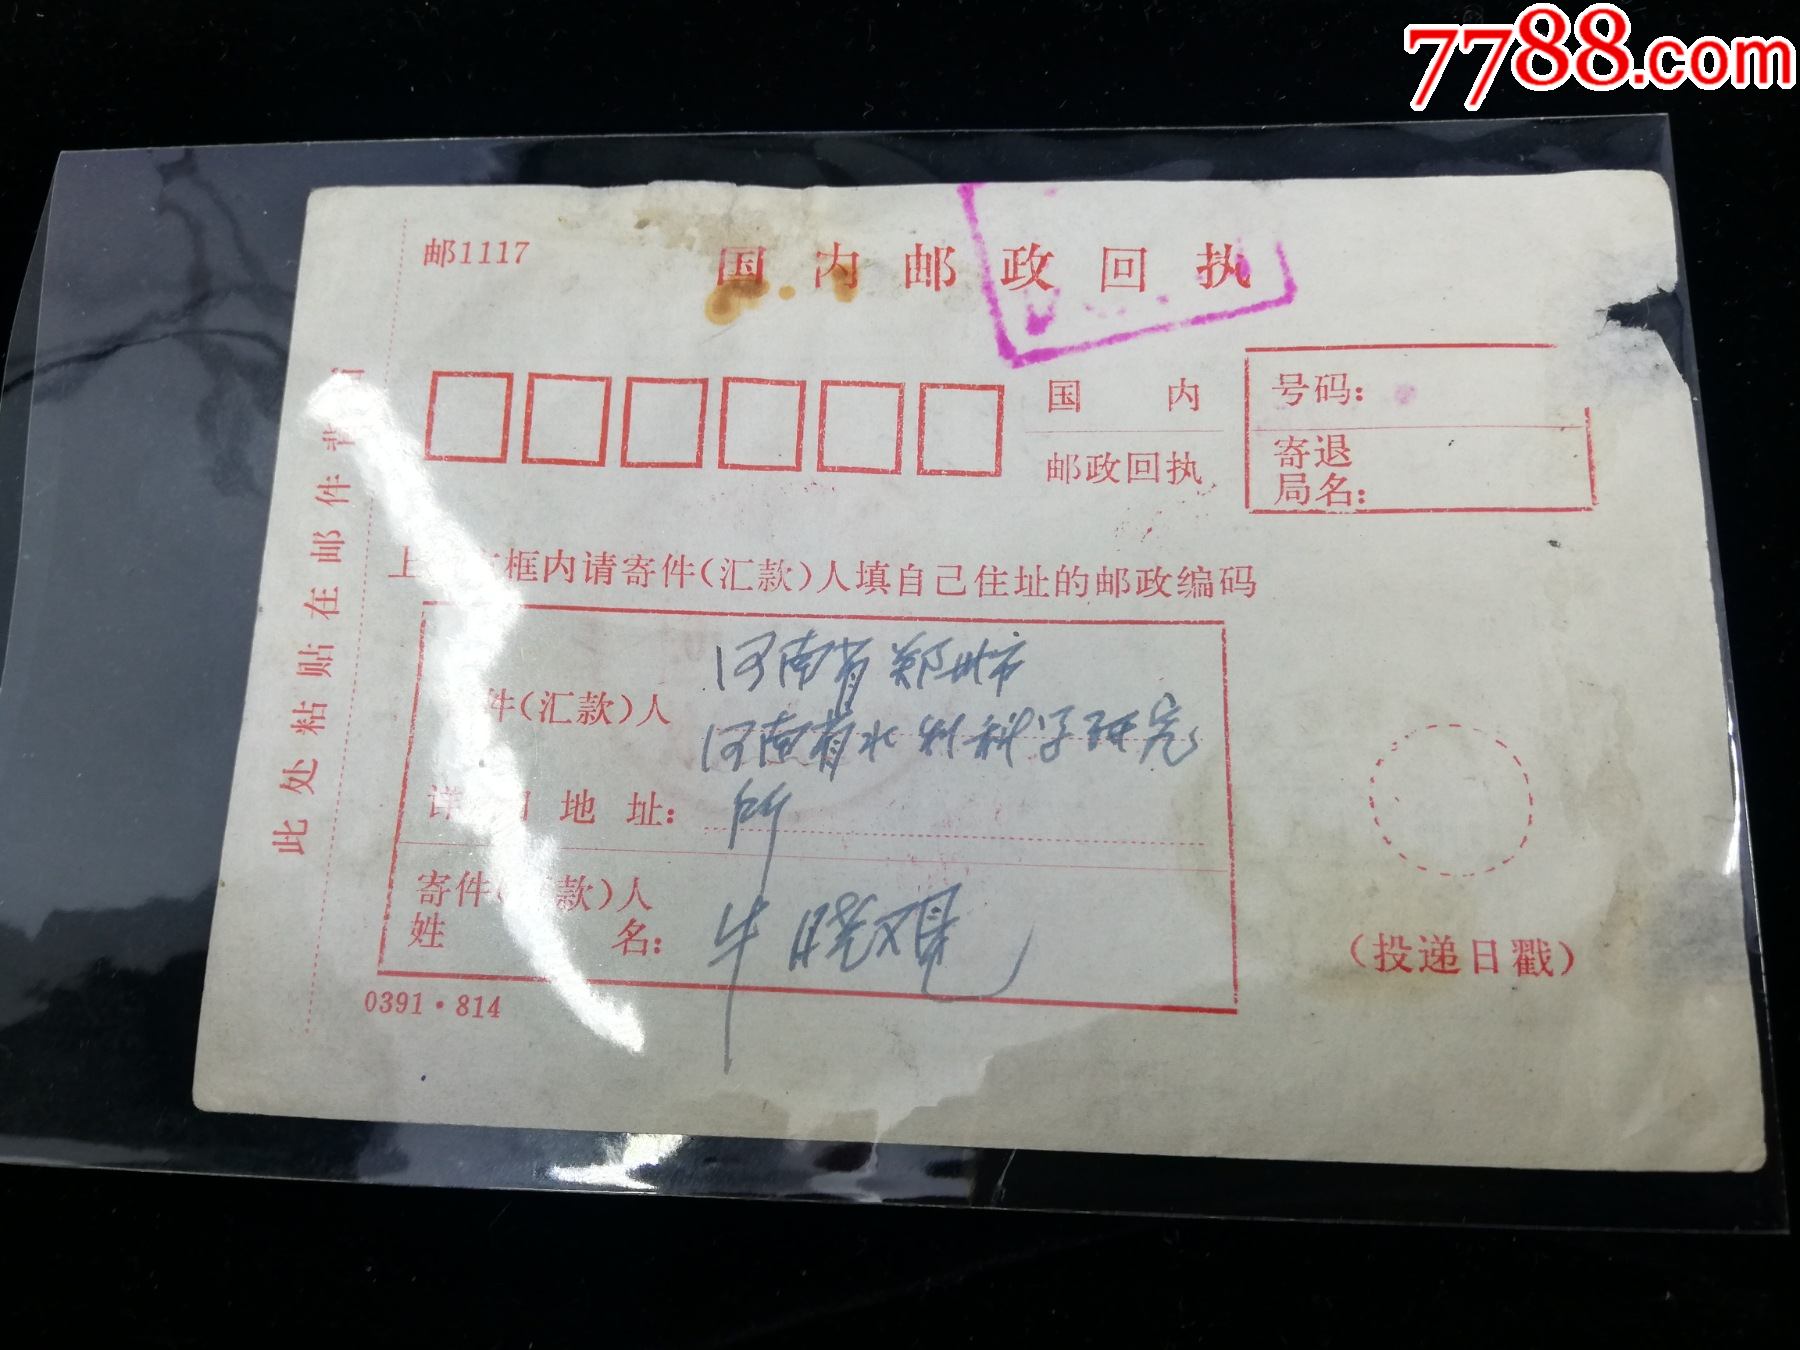 7788.com
邮1117
国内邮政回执
国内
邮政回执
号码：
寄退
局名：
此处粘贴在邮件背
上 框内请寄件(汇款)人填自己住址的邮政编码
件(汇款)人
地址：
河南省郑州市
河南省水利科学研究
所
寄件( 款)人
姓名：
牛晓
0391·814
(投递日戳)